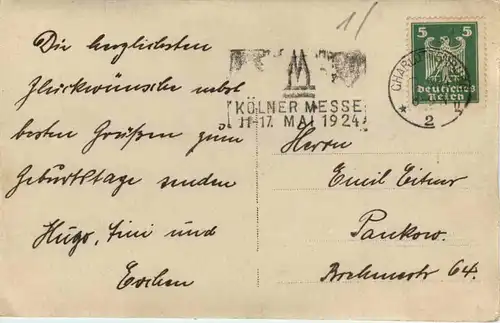 1/
Die herzlichsten
Glückwünsche nebst
besten Grüßen zum
Geburtstage senden
Hugo, und
5 5
Deutsches
Reich
CHARLOTTENBURG
* 2
KÖLNER MESSE
11-17. MAI 1924
Herrn
Emil
Pankow.
64.